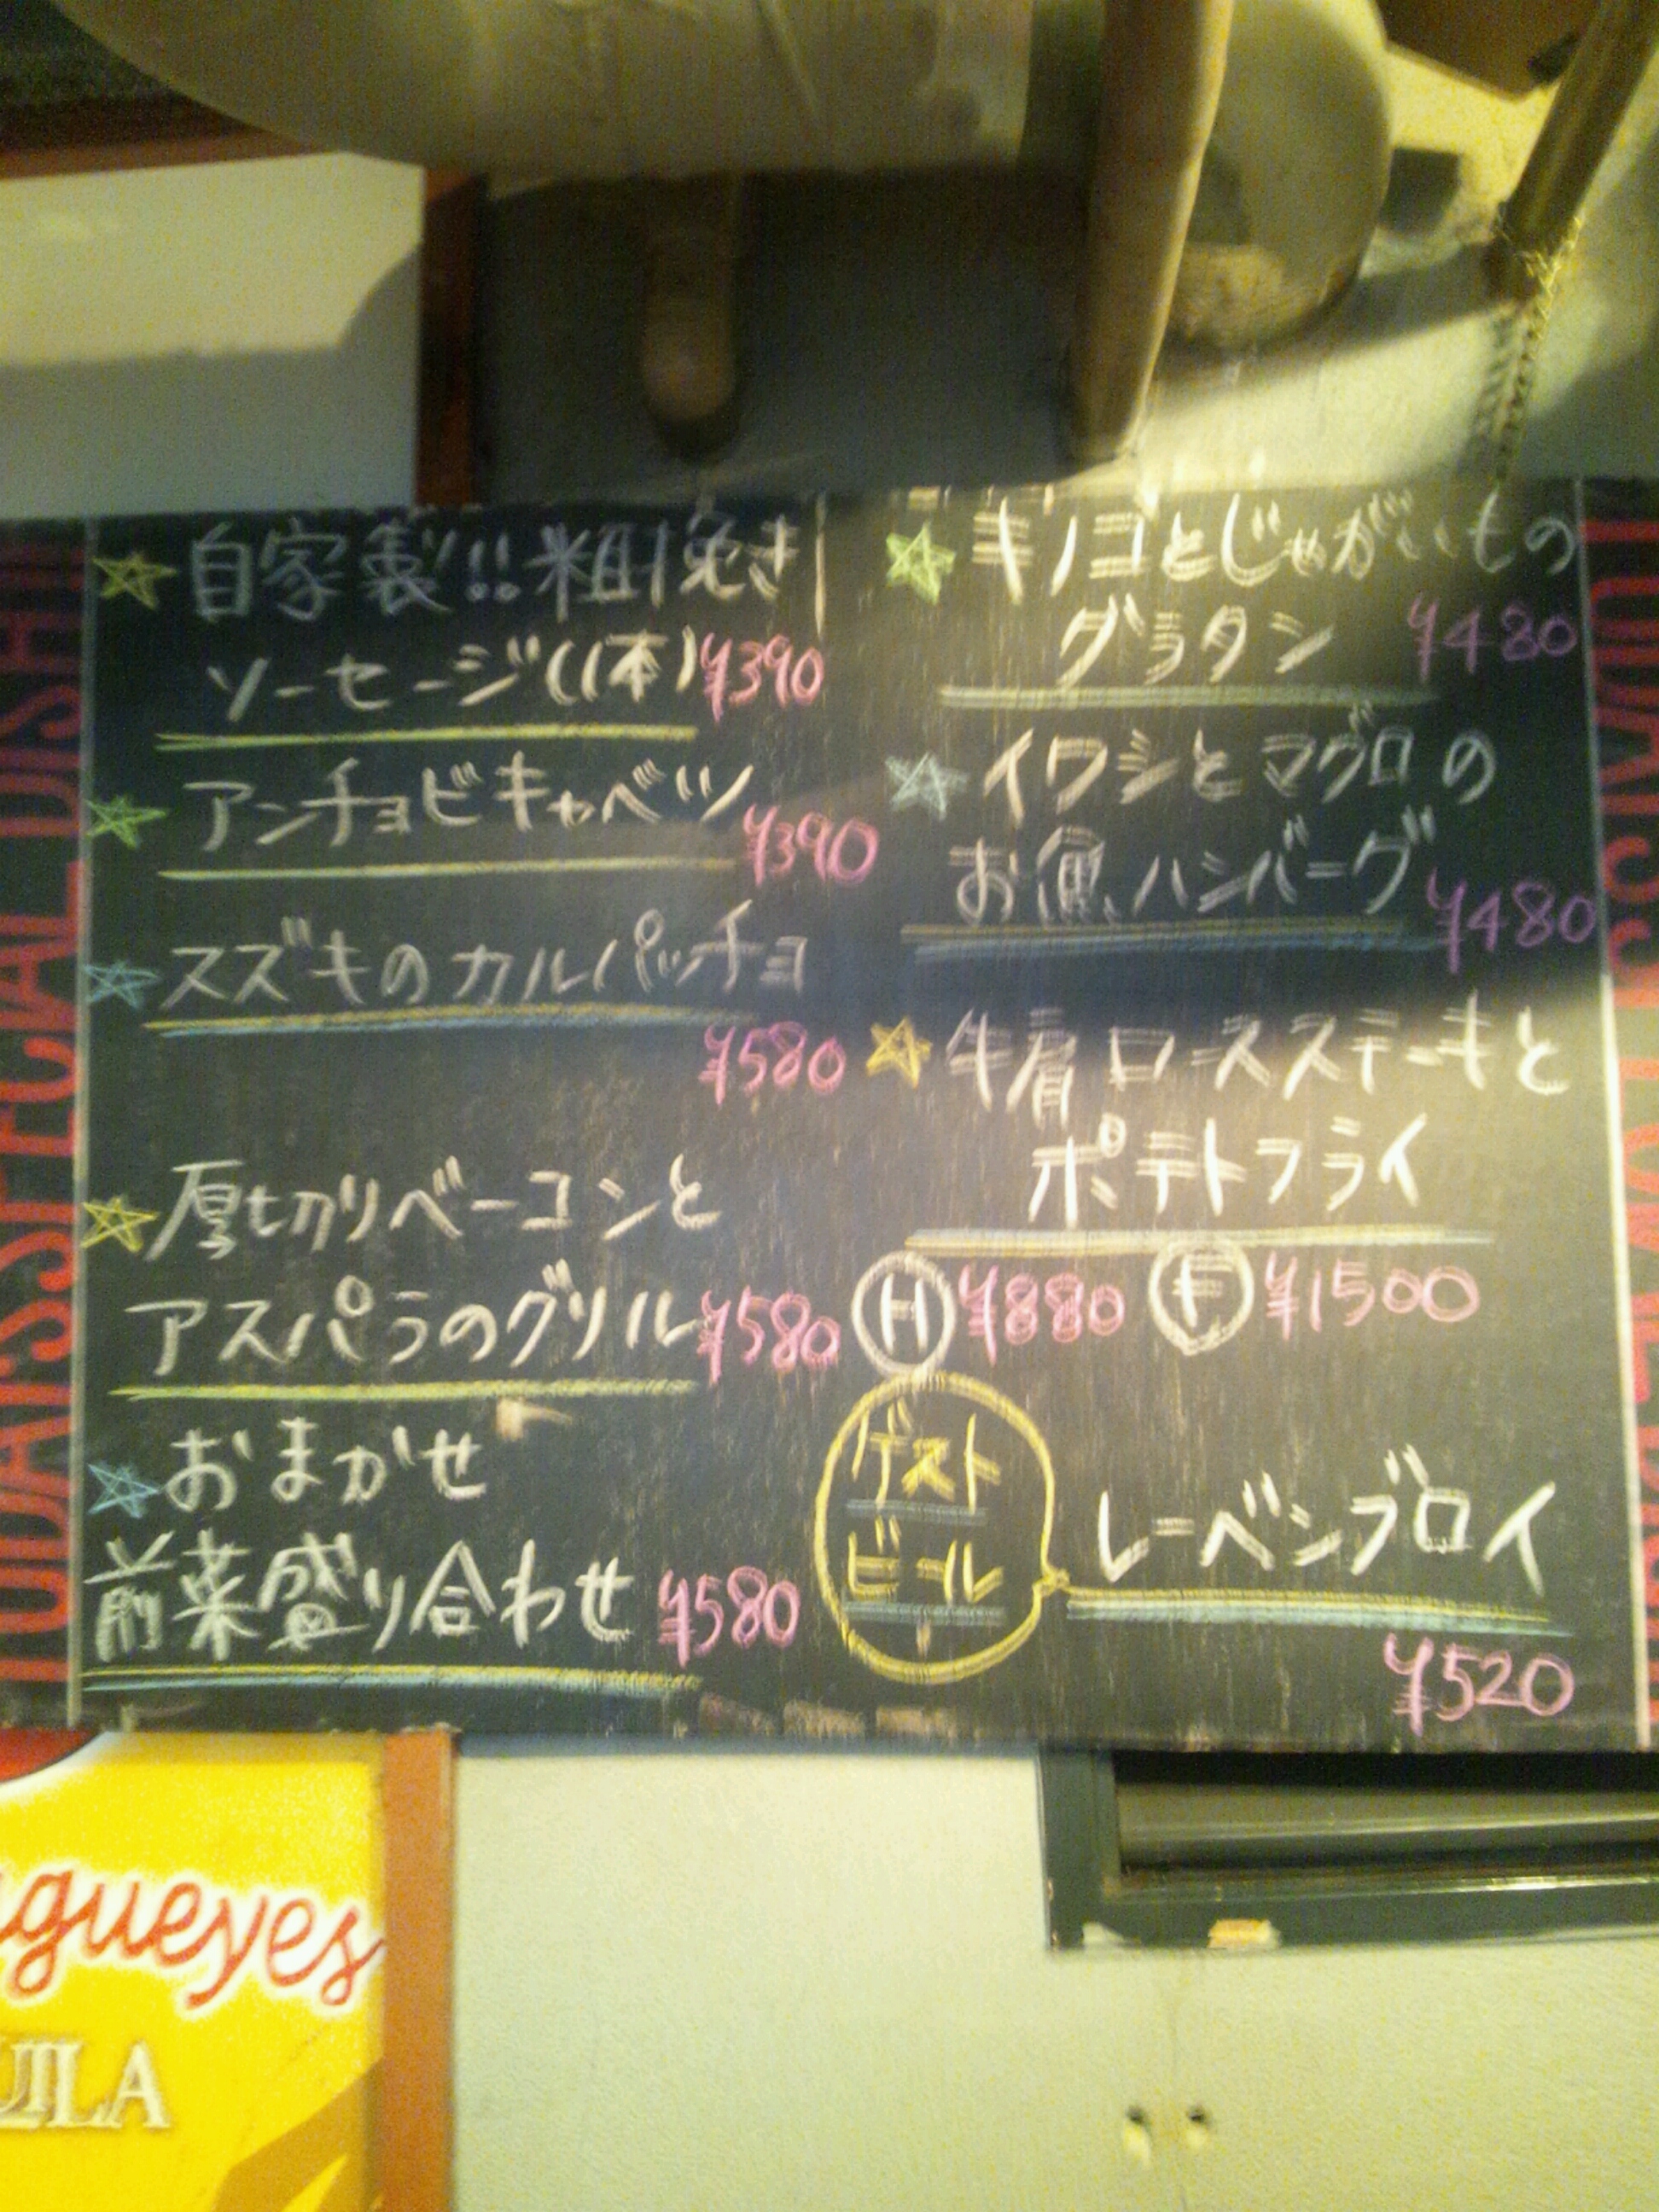 TODAY'S SPECIAL DISH
自家製!!粗挽き
ソーセージ(1本)¥390
アンチョビキャベツ
¥390
スズキのカルパッチョ
¥580
厚切りベーコンと
アスパラのグリル¥580
おまかせ
前菜盛り合わせ ¥580
キノコとじゃがいもの
グラタン ¥480
イワシとマグロの
お魚ハンバーグ
¥480
牛肩ロースステーキと
ポテトフライ
H ¥880 F ¥1500
ゲスト
ビール
レーベンブロイ
¥520
gueyes
UILA